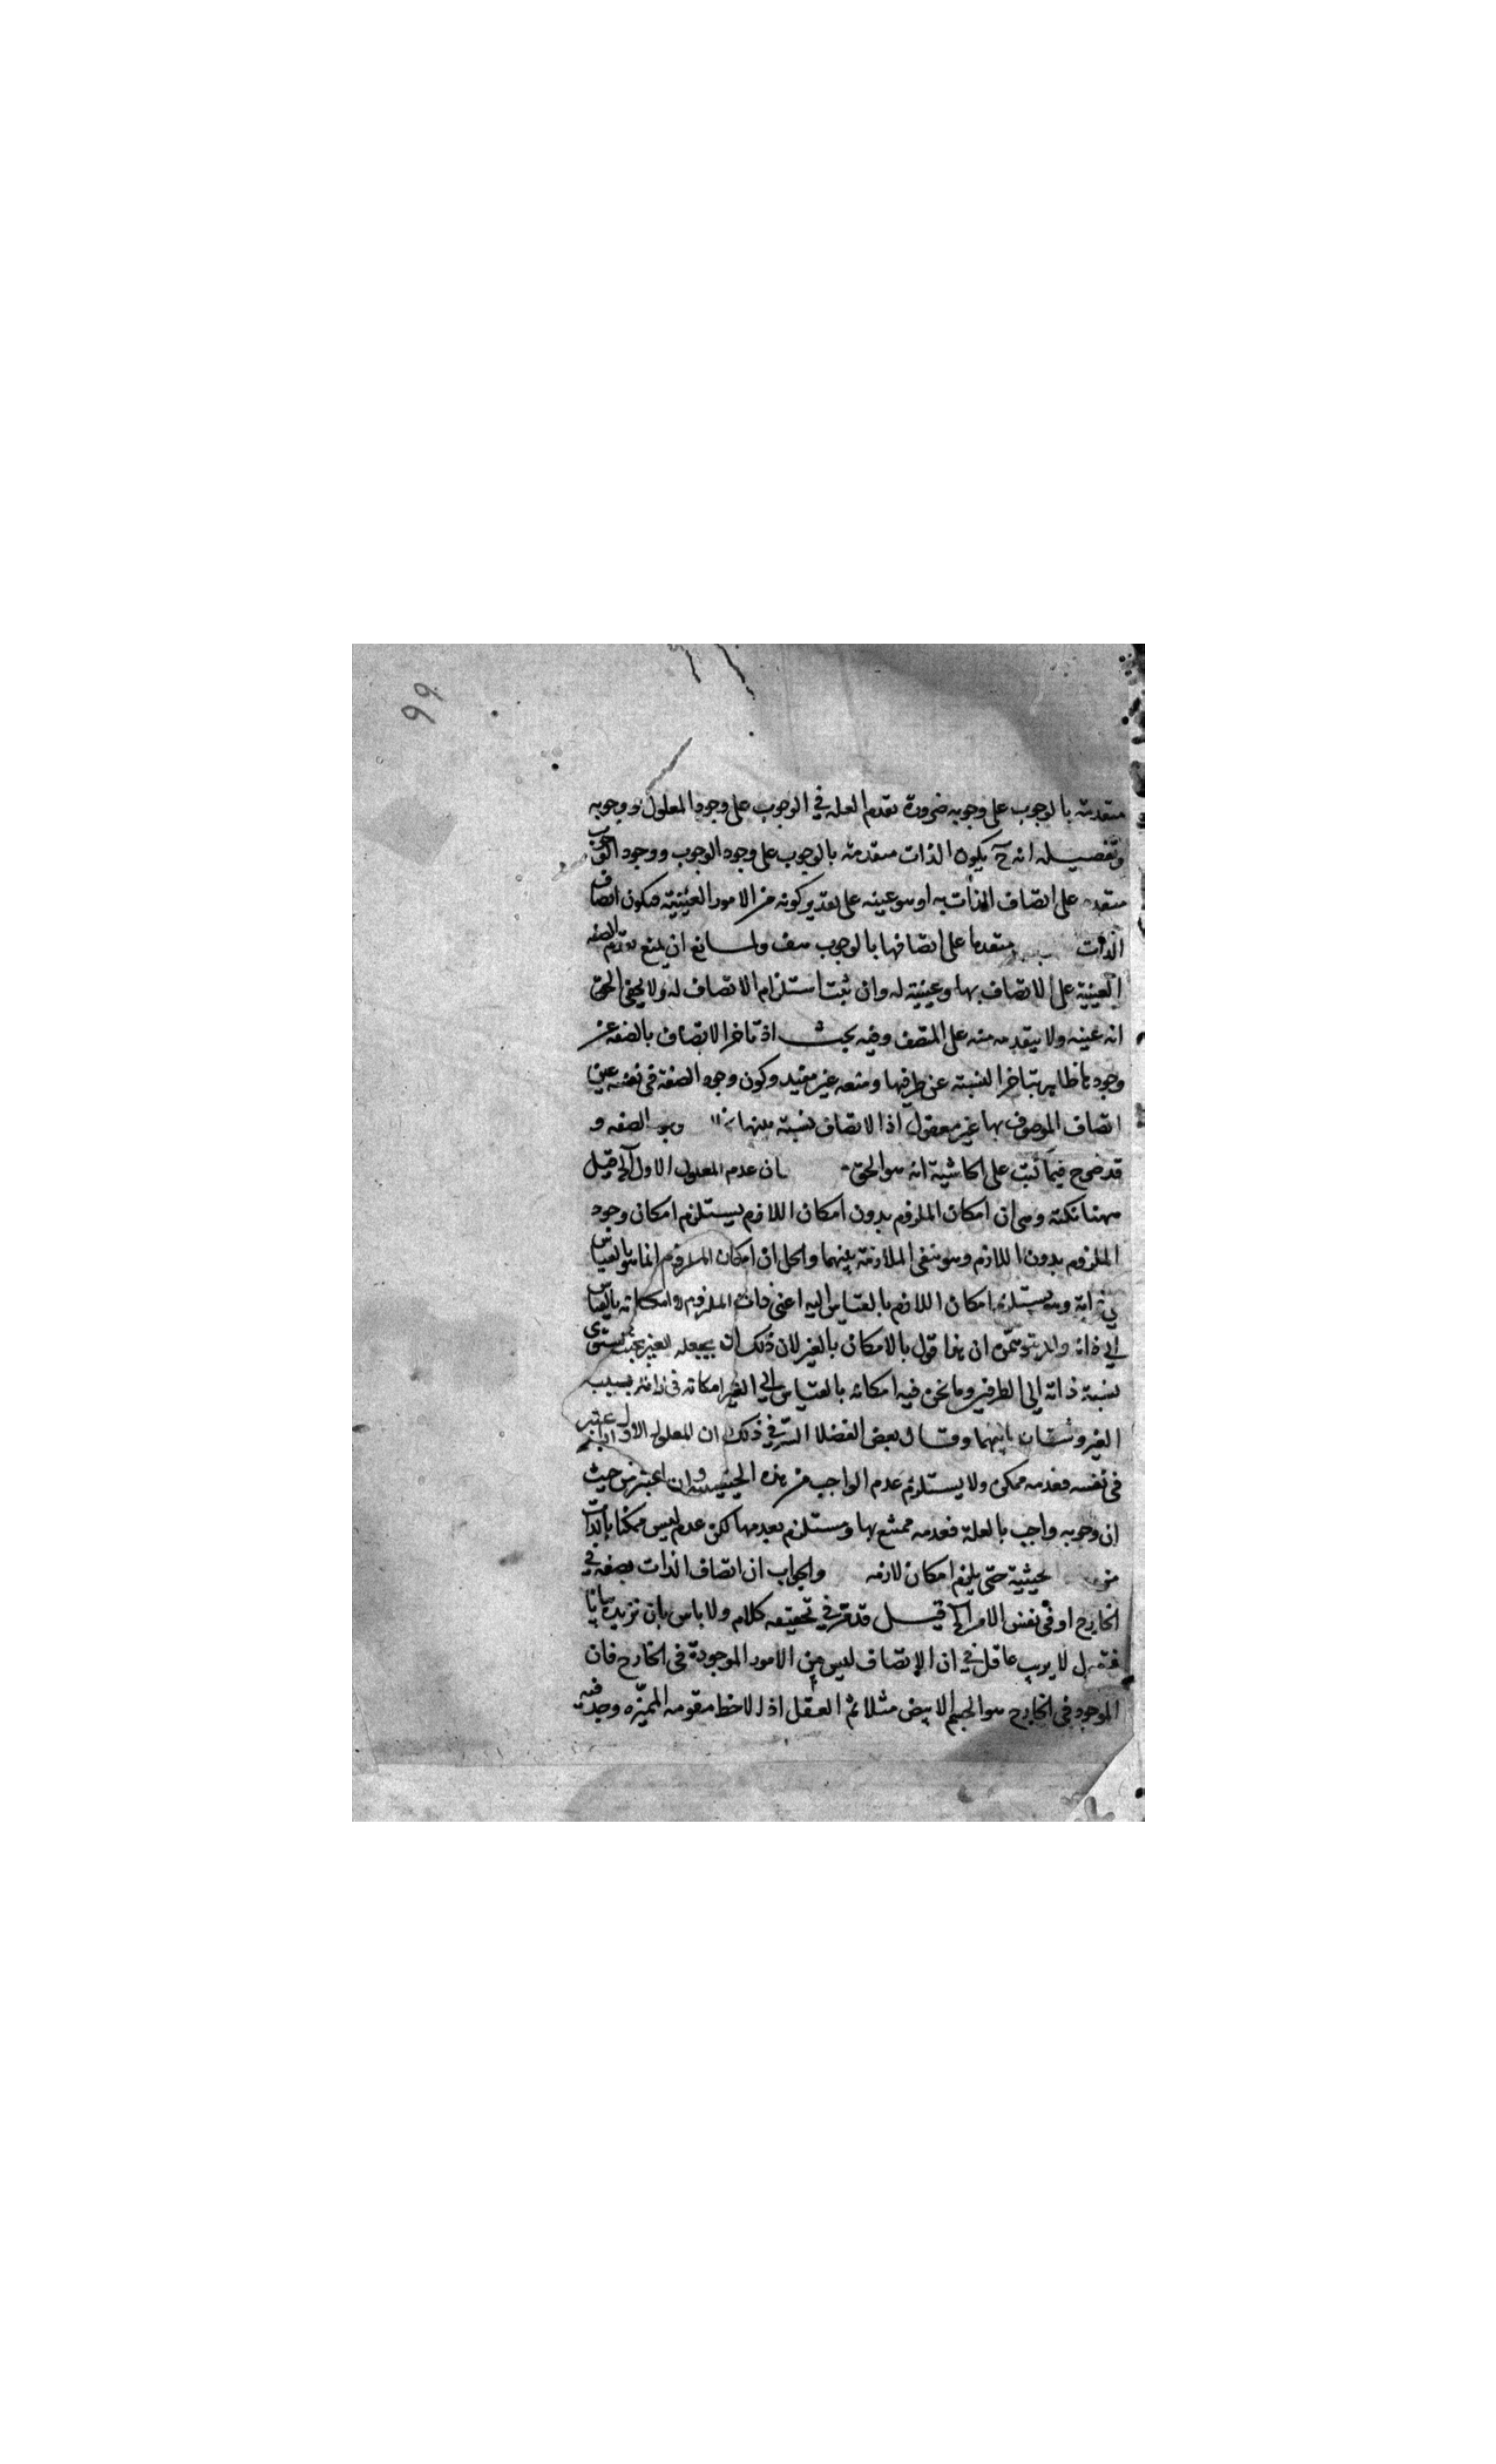 99
متقدمة بالوجوب على وجوبه ضرورة تقدم العلة في الوجوب على وجود المعلول ووجوبه
وتفصيله انه ح يكون الذات متقدمة بالوجوب على وجود الوجوب ووجود الوجوب
متقدم على اتصاف الذات به او هو عينه على تقدير كونه من الامور العينية فيكون اتصاف
الذات متقدما على اتصافها بالوجوب هف ولمانع ان يمنع تقدم الصفة
العينية على الاتصاف بها وعينيته له وان ثبت استلزام الاتصاف له ولا يخفى الحق
انه عينه ولا يتقدمه منه على المتصف وفيه بحث اذ تاخر الاتصاف بالصفة عن
وجودها ظاهر بتاخر النسبة عن طرفيها ومنعه غير مفيد وكون وجود الصفة في نفسه عين
اتصاف الموصوف بها غير معقول اذ الاتصاف نسبة بينها وبين الصفه و
قد صرح فيما كتب على الحاشية انه هو الحق بان عدم المعلول الاول آلخ قيل
مهنا نكتة وهى ان امكان الملزوم بدون امكان اللازم يستلزم امكان وجود
الملزوم بدون اللازم وهو ينفى الملازمة بينهما والحل ان امكان الملزوم انما هو بالقياس
الى ذاته وهو يستلزم امكان اللازم بالقياس اليه اعنى ذات الملزوم لا امكانه بالقياس
الى ذاته ولا يتوهمن ان هذا قول بالامكان بالغير لان ذلك ان يجعله الغير بحيث يستوى
نسبة ذاته الى الطرفين وما نحن فيه امكانه بالقياس الى الغير امكانه في ذاته بسبب
الغير وشتان ما بينهما وقال بعض الفضلا السر في ذلك ان المعلول الاول ان اعتبر
في نفسه فعدمه ممكن ولا يستلزم عدم الواجب من هذه الحيثية وان اعتبر من حيث
ان وجوبه واجب بالعلة فعدمه ممتنع بها ومستلزم بعدمها لكن عدمه ليس ممكنا بالذات
من الحيثية حتى يلزم امكان لازمه والجواب ان اتصاف الذات بصفه في
الخارج او في نفس الامر آلخ قيل قد مر في تحقيقه كلام ولا باس بان نزيده بيانا
فنقول لا يريب عاقل في ان الاتصاف ليس من الامور الموجودة في الخارج فان
الموجود في الخارج هو الجسم الابيض مثلا ثم العقل اذا لاحظ مقومه المميزه وجد فيه